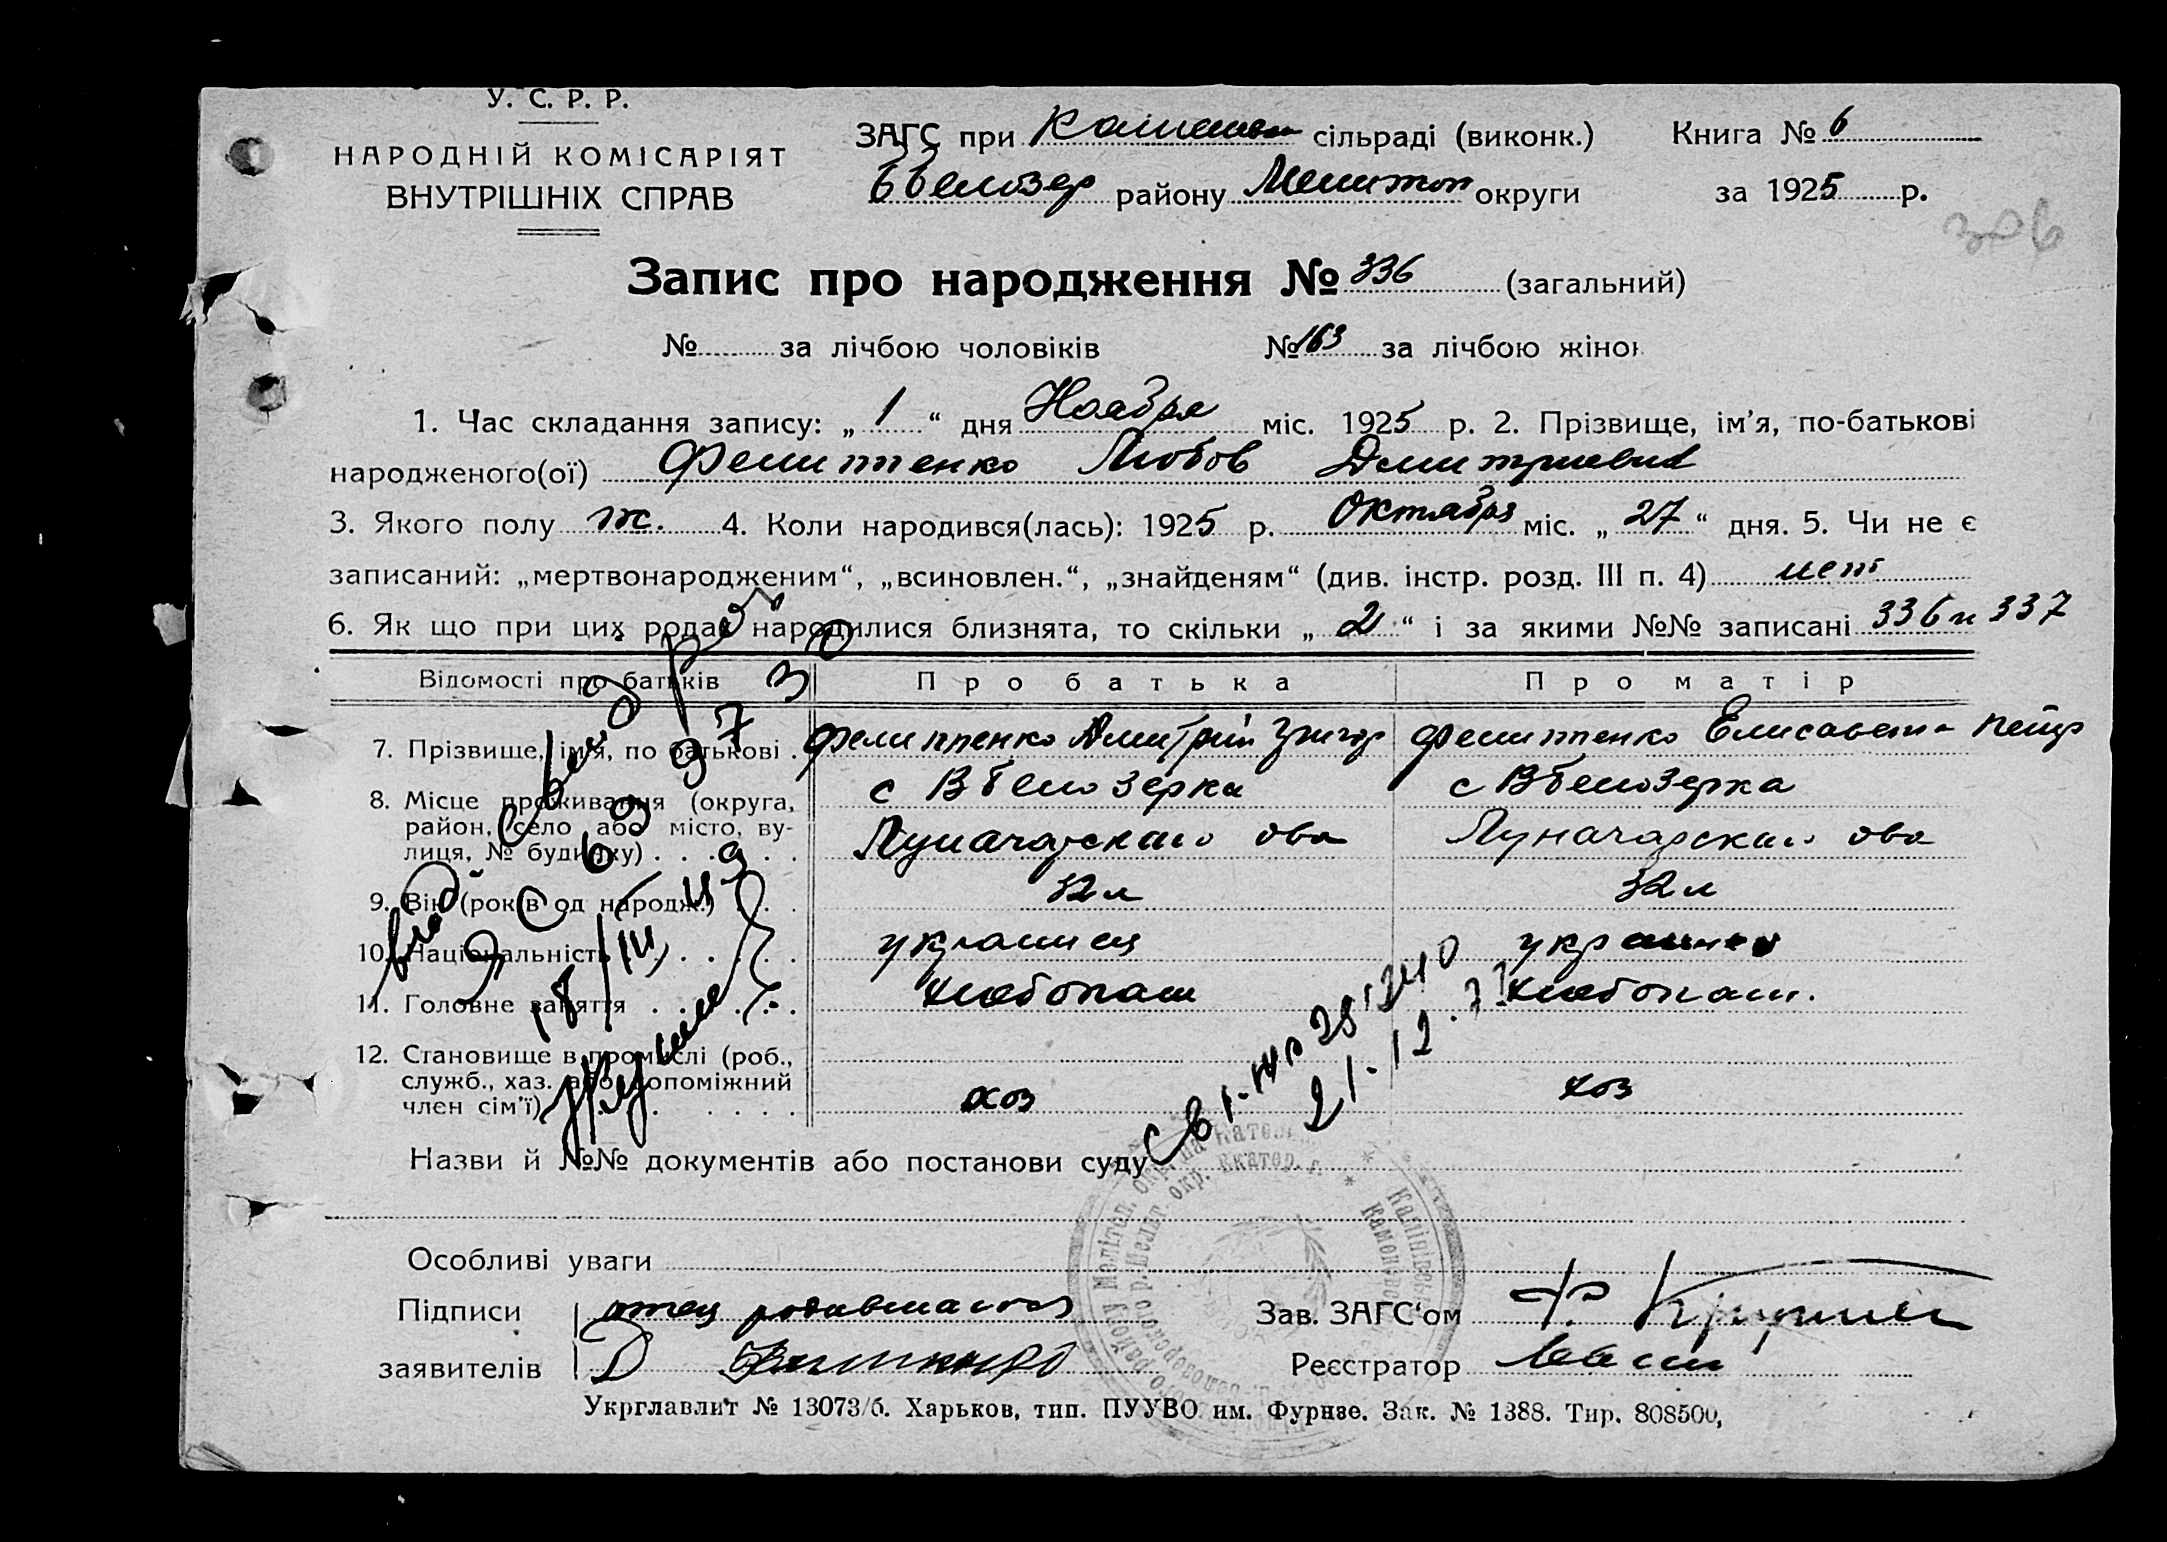 У. С. Р. Р.
НАРОДНІЙ КОМІСАРІЯТ
ВНУТРІШНІХ СПРАВ
ЗАГС при сільраді (виконк.) Книга № 6
Ббелозер району Мелитоп округи за 1925 р.
306
Запис про народження № 336 (загальний)
№ за лічбою чоловіків № 163 за лічбою жінок
1. Час складання запису: „ 1 “ дня Ноября міс. 1925 р. 2. Прізвище, ім’я, по-батькові
народженого(ої) Филиппенко Любов Дмитриевна
3. Якого полу ж. 4. Коли народився(лась): 1925 р. Октября міс. „ 27 “ дня. 5. Чи не є
записаний: „мертвонародженим“, „всиновлен.“, „знайденям“ (див. інстр. розд. III п. 4) нет
6. Як що при цих родах народилися близнята, то скільки „ 2 “ і за якими №№ записані 336 и 337
Відомості про батьків Про батька Про матір
7. Прізвище, ім’я, по батькові . Филиппенко Дмитрий Григор Филиппенко Елисавета Петр
8. Місце проживання (округа, с Вбелозерка с Вбелозерка
район, село або місто, ву-
лиця, № будинку) . . . . . Луначарскаго ова Луначарскаго ова
9. Вік (років од народж.) . . . 32 л 32 л
10. Національність . . . . . украинец украинка
11. Головне заняття . . . . . хлебопаш хлебопаш.
12. Становище в промислі (роб.,
служб., хаз. або допоміжний
член сім’ї) . . . . . . хоз хоз
21.12.71
Назви й №№ документів або постанови суду
Особливі уваги
Підписи отец родившагося Зав. ЗАГС‘ом
заявителів Реєстратор
Укрглавлит № 13073/б. Харьков, тип. ПУУВО им. Фрунзе. Зак. № 1388. Тир. 808500,